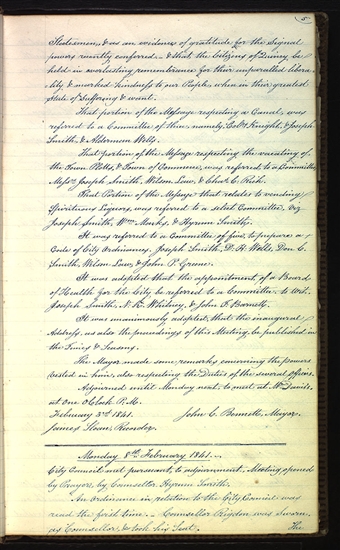 5
Statesmen, & as an evidence of gratitude for the signal
powers recently conferred – & that the Citizens of Quincy be
held in everlasting remembrance for their unparalled libera-
lity & marked kindness to our People, when in their greatest
state of suffering & want.
That portion of the Message respecting a Canal, was
referred to a Committee of three, namely, Cols. Knight, & Joseph
Smith, & Alderman Wells.
That portion of the Message respecting the vacating of
the Town Plotts, & Town of Commerce, was referred to a Committee,
Messrs. Joseph Smith, Wilson Law, & Chas. C. Rich.
That Portion of the Message that relates to vending
Spirituous Liquors, was referred to a select Committee, viz
Joseph Smith, Wm. Marks, & Hyrum Smith.
It was referred to a Committee of five, to prepare a
Code of City Ordinances. Joseph Smith, D. H. Wells, Don C.
Smith, Wilson Law, & John P. Greene.
It was adopted that the appointment of a Board
of Health for the City be referred to a Committee to wit.
Joseph Smith, N. K. Whitney, & John T. Barnett.
It was unanimously adopted, that the inaugural
Address, as also the proceedings of this Meeting, be published in
the Times & Seasons.
The Mayor made some remarks concerning the powers
vested in him, also respecting the Duties of the several officers.
Adjourned until Monday next to meet at Mr.
at one O'Clock P.M.
February 3rd 1841. John C. Bennett, Mayor.
James Sloan, Recorder.
Monday 8th February 1841.
City Council met pursuant to adjournment, Meeting opened
by Prayer, by Counsellor Hyrum Smith.
An Ordinance in relation to the City Council was
read the first time. – Counsellor Rigdon was sworn,
as Counsellor, & took his Seat.
The